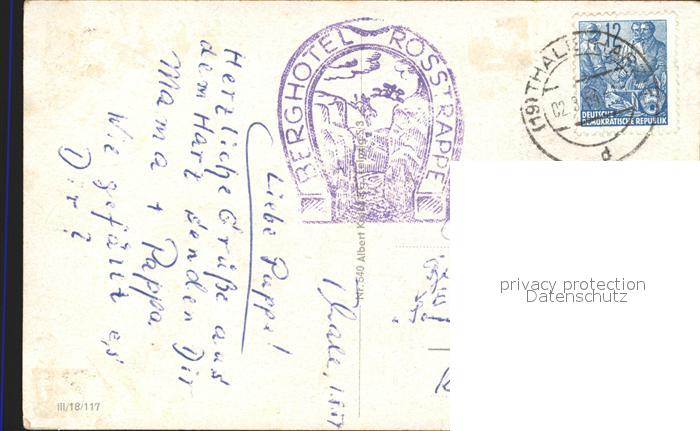 BERGHOTEL ROSSTRAPPE
(19) THALE
12
DEUTSCHE
DEMOKRATISCHE REPUBLIK
Thale, 1.8.57
Liebe Puppe!
Herzliche Grüße aus
dem Harz senden Dir
Mama + Pappa.
Wie gefällt es
Dir?
Nr. 540 Albert
III/18/117
privacy protection
Datenschutz